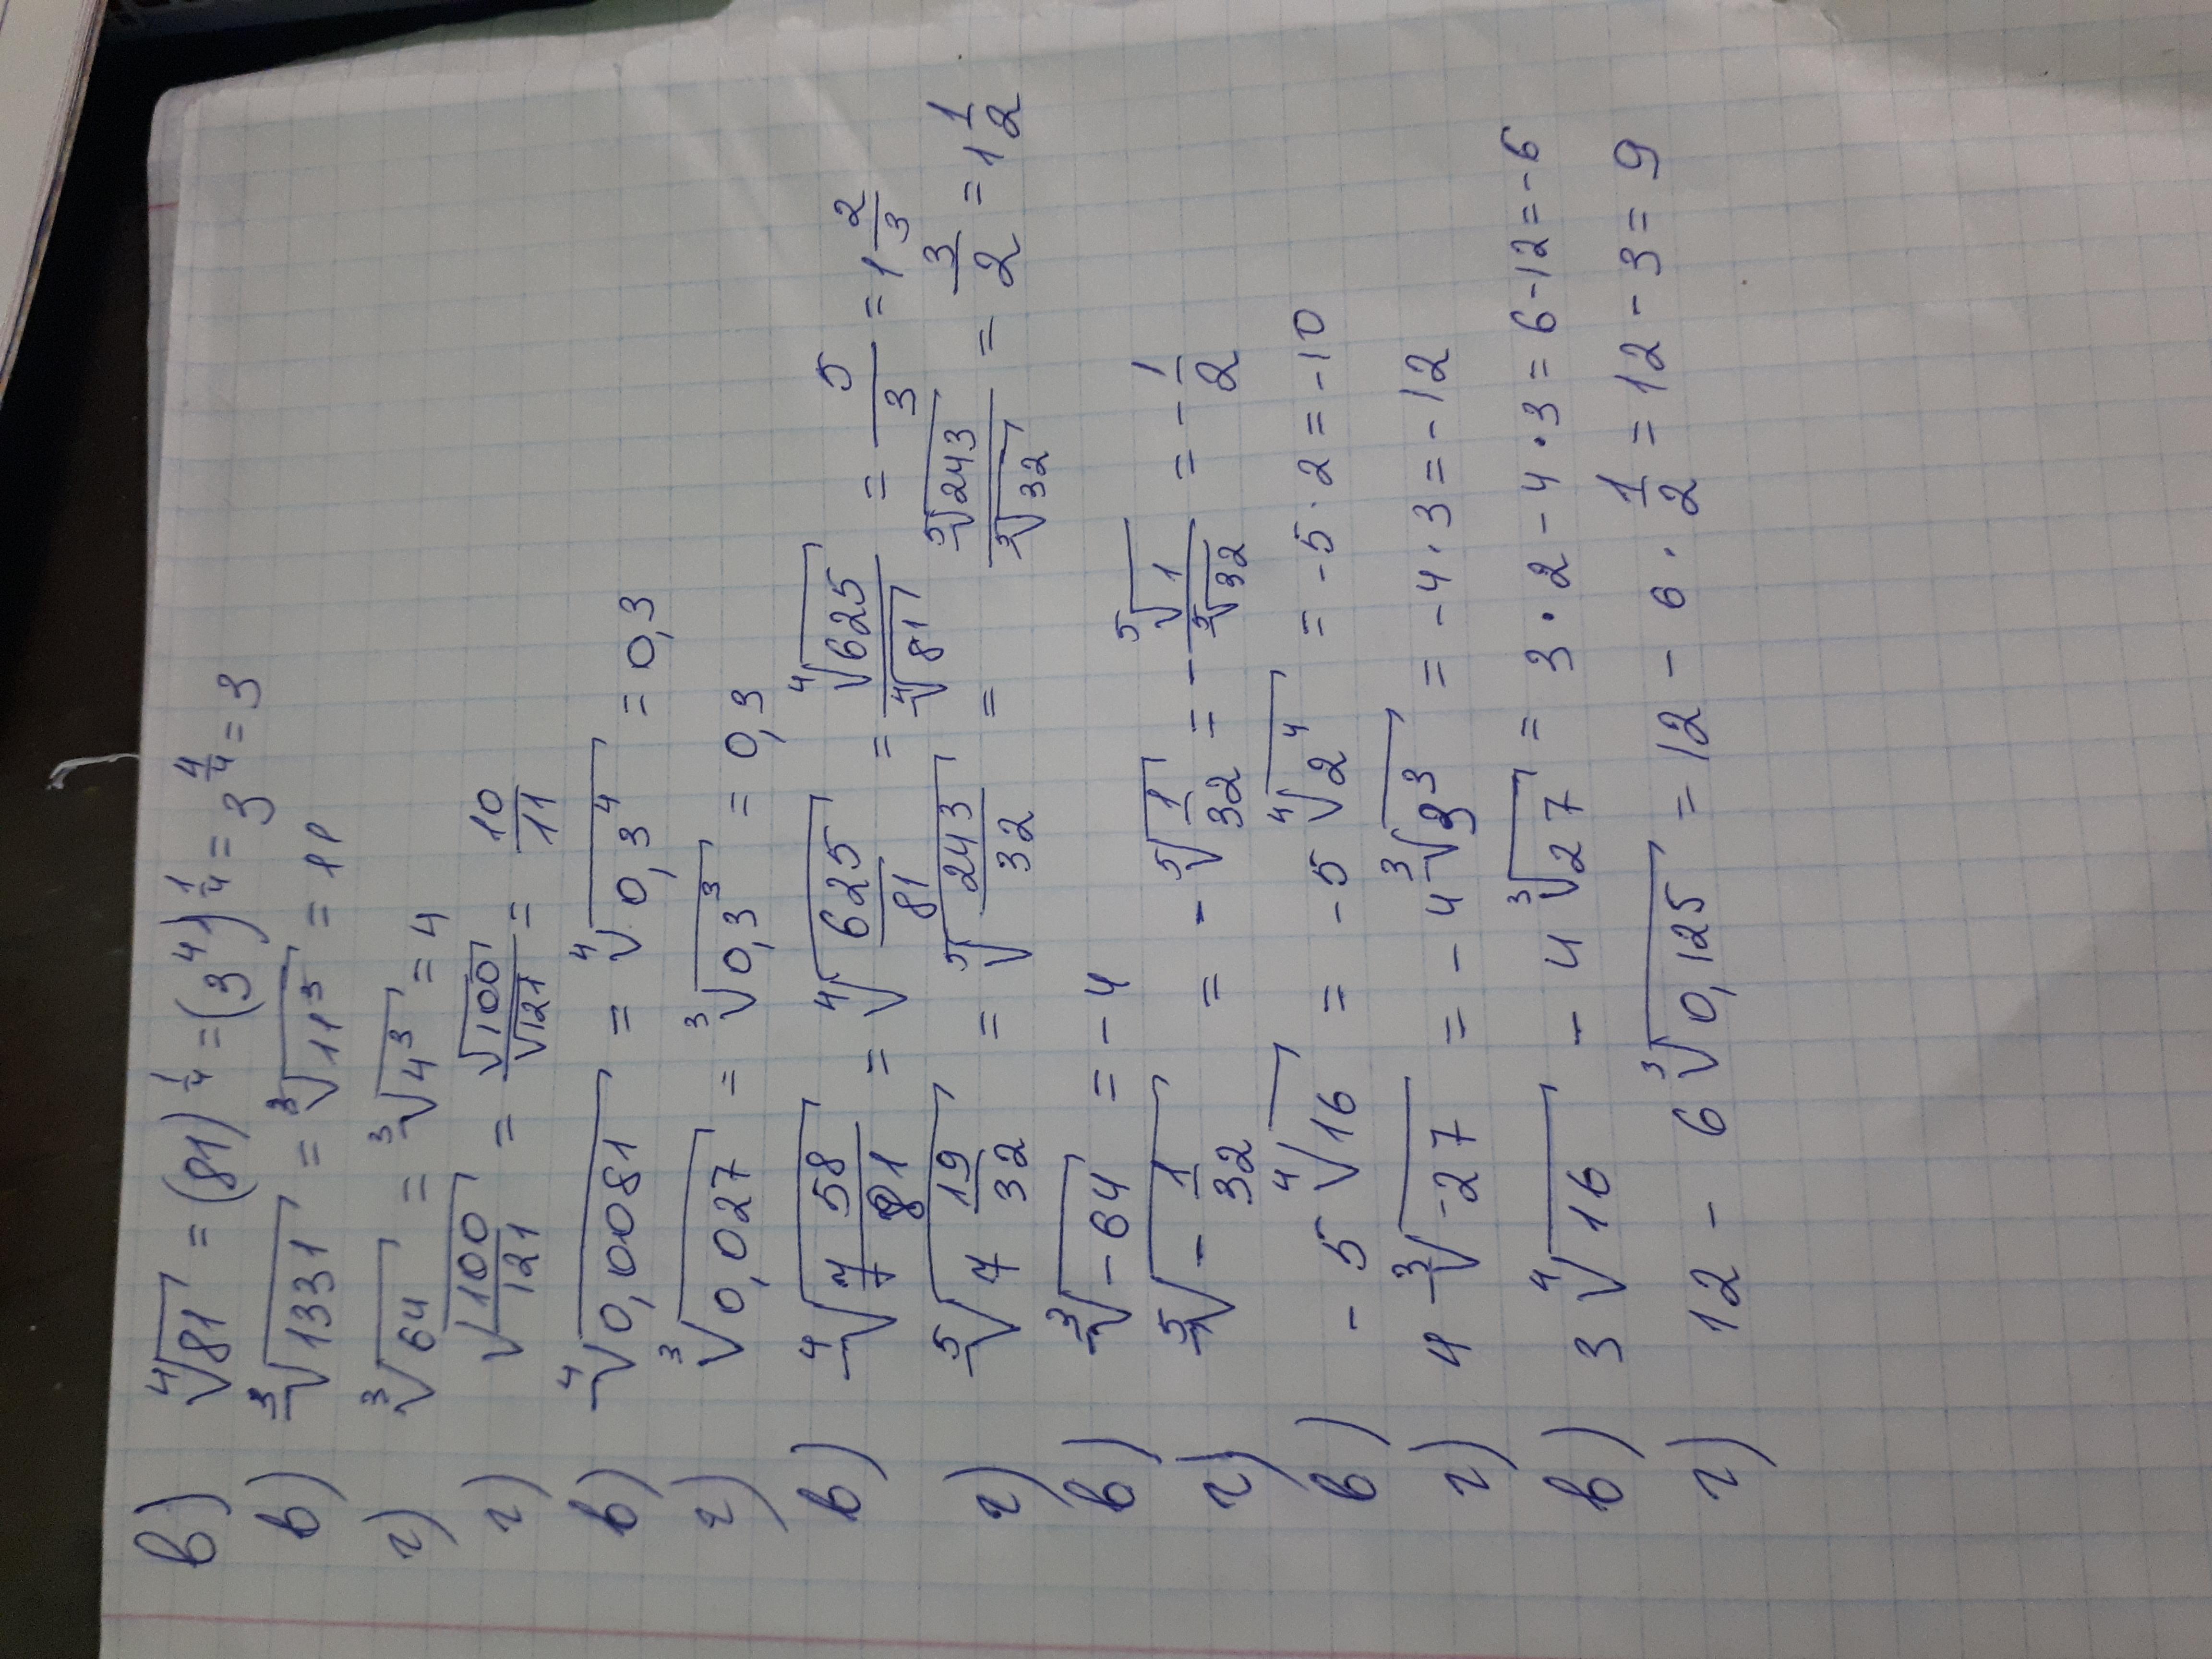 в) ⁴√81 = (81)^(1/4) = (3⁴)^(1/4) = 3^(4/4) = 3
в) ³√1331 = ³√11³ = 11
г) ³√64 = ³√4³ = 4
г) √(100/121) = √100/√121 = 10/11
в) ⁴√0,0081 = ⁴√0,3⁴ = 0,3
г) ³√0,027 = ³√0,3³ = 0,3
в) ⁴√(7 58/81) = ⁴√(625/81) = ⁴√625/⁴√81 = 5/3 = 1 2/3
г) ⁵√(7 19/32) = ⁵√(243/32) = ⁵√243/⁵√32 = 3/2 = 1 1/2
в) ³√-64 = -4
г) ⁵√(-1/32) = -⁵√(1/32) = -⁵√1/⁵√32 = -1/2
в) -5 ⁴√16 = -5 ⁴√2⁴ = -5·2 = -10
г) 4 ³√-27 = -4 ³√3³ = -4·3 = -12
в) 3 ⁴√16 - 4 ³√27 = 3·2 - 4·3 = 6-12 = -6
г) 12 - 6 ³√0,125 = 12 - 6·1/2 = 12 - 3 = 9